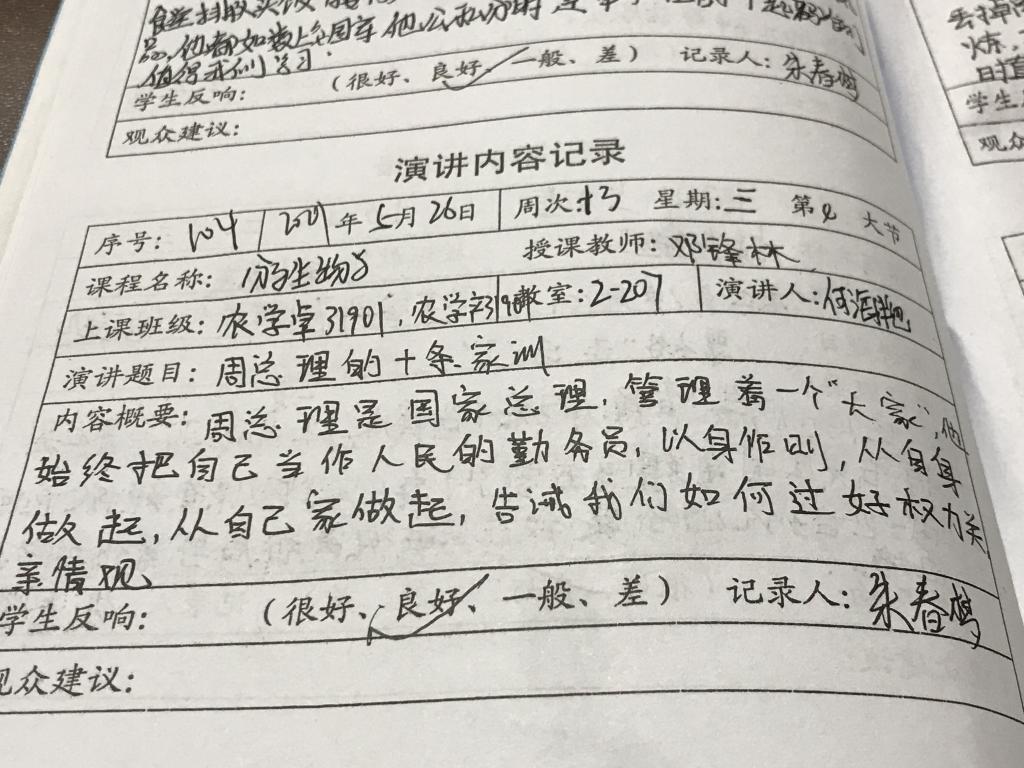 品,他都如数上交国库他公私分明
值得我们学习.
学生反响: (很好、良好、一般、差) 记录人: 朱春
观众建议:
演讲内容记录
序号: 104 2021年5月26日 周次:十三 星期:三 第4大节
课程名称: 分子生物学 授课教师: 邓锋林
上课班级: 农学卓31901,农学 教室:2-207 演讲人:何
演讲题目: 周总理的十条家训
内容概要: 周总理是国家总理,管理着一个“大家”,他
始终把自己当作人民的勤务员,以身作则,从自身
做起,从自己家做起,告诫我们如何过好权力关
亲情观、
学生反响: (很好、良好、一般、差) 记录人: 朱春
观众建议:
学生
观众